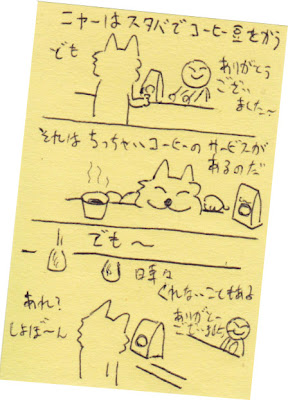 ニャーはスタバでコーヒー豆をかう
でも
ありがとう
ござい
ました〜
それはちっちゃいコーヒーのサービスが
あるのだ
でも〜
時々
くれないこともある
あれ?
しょぼ〜ん
ありがとー
ございました